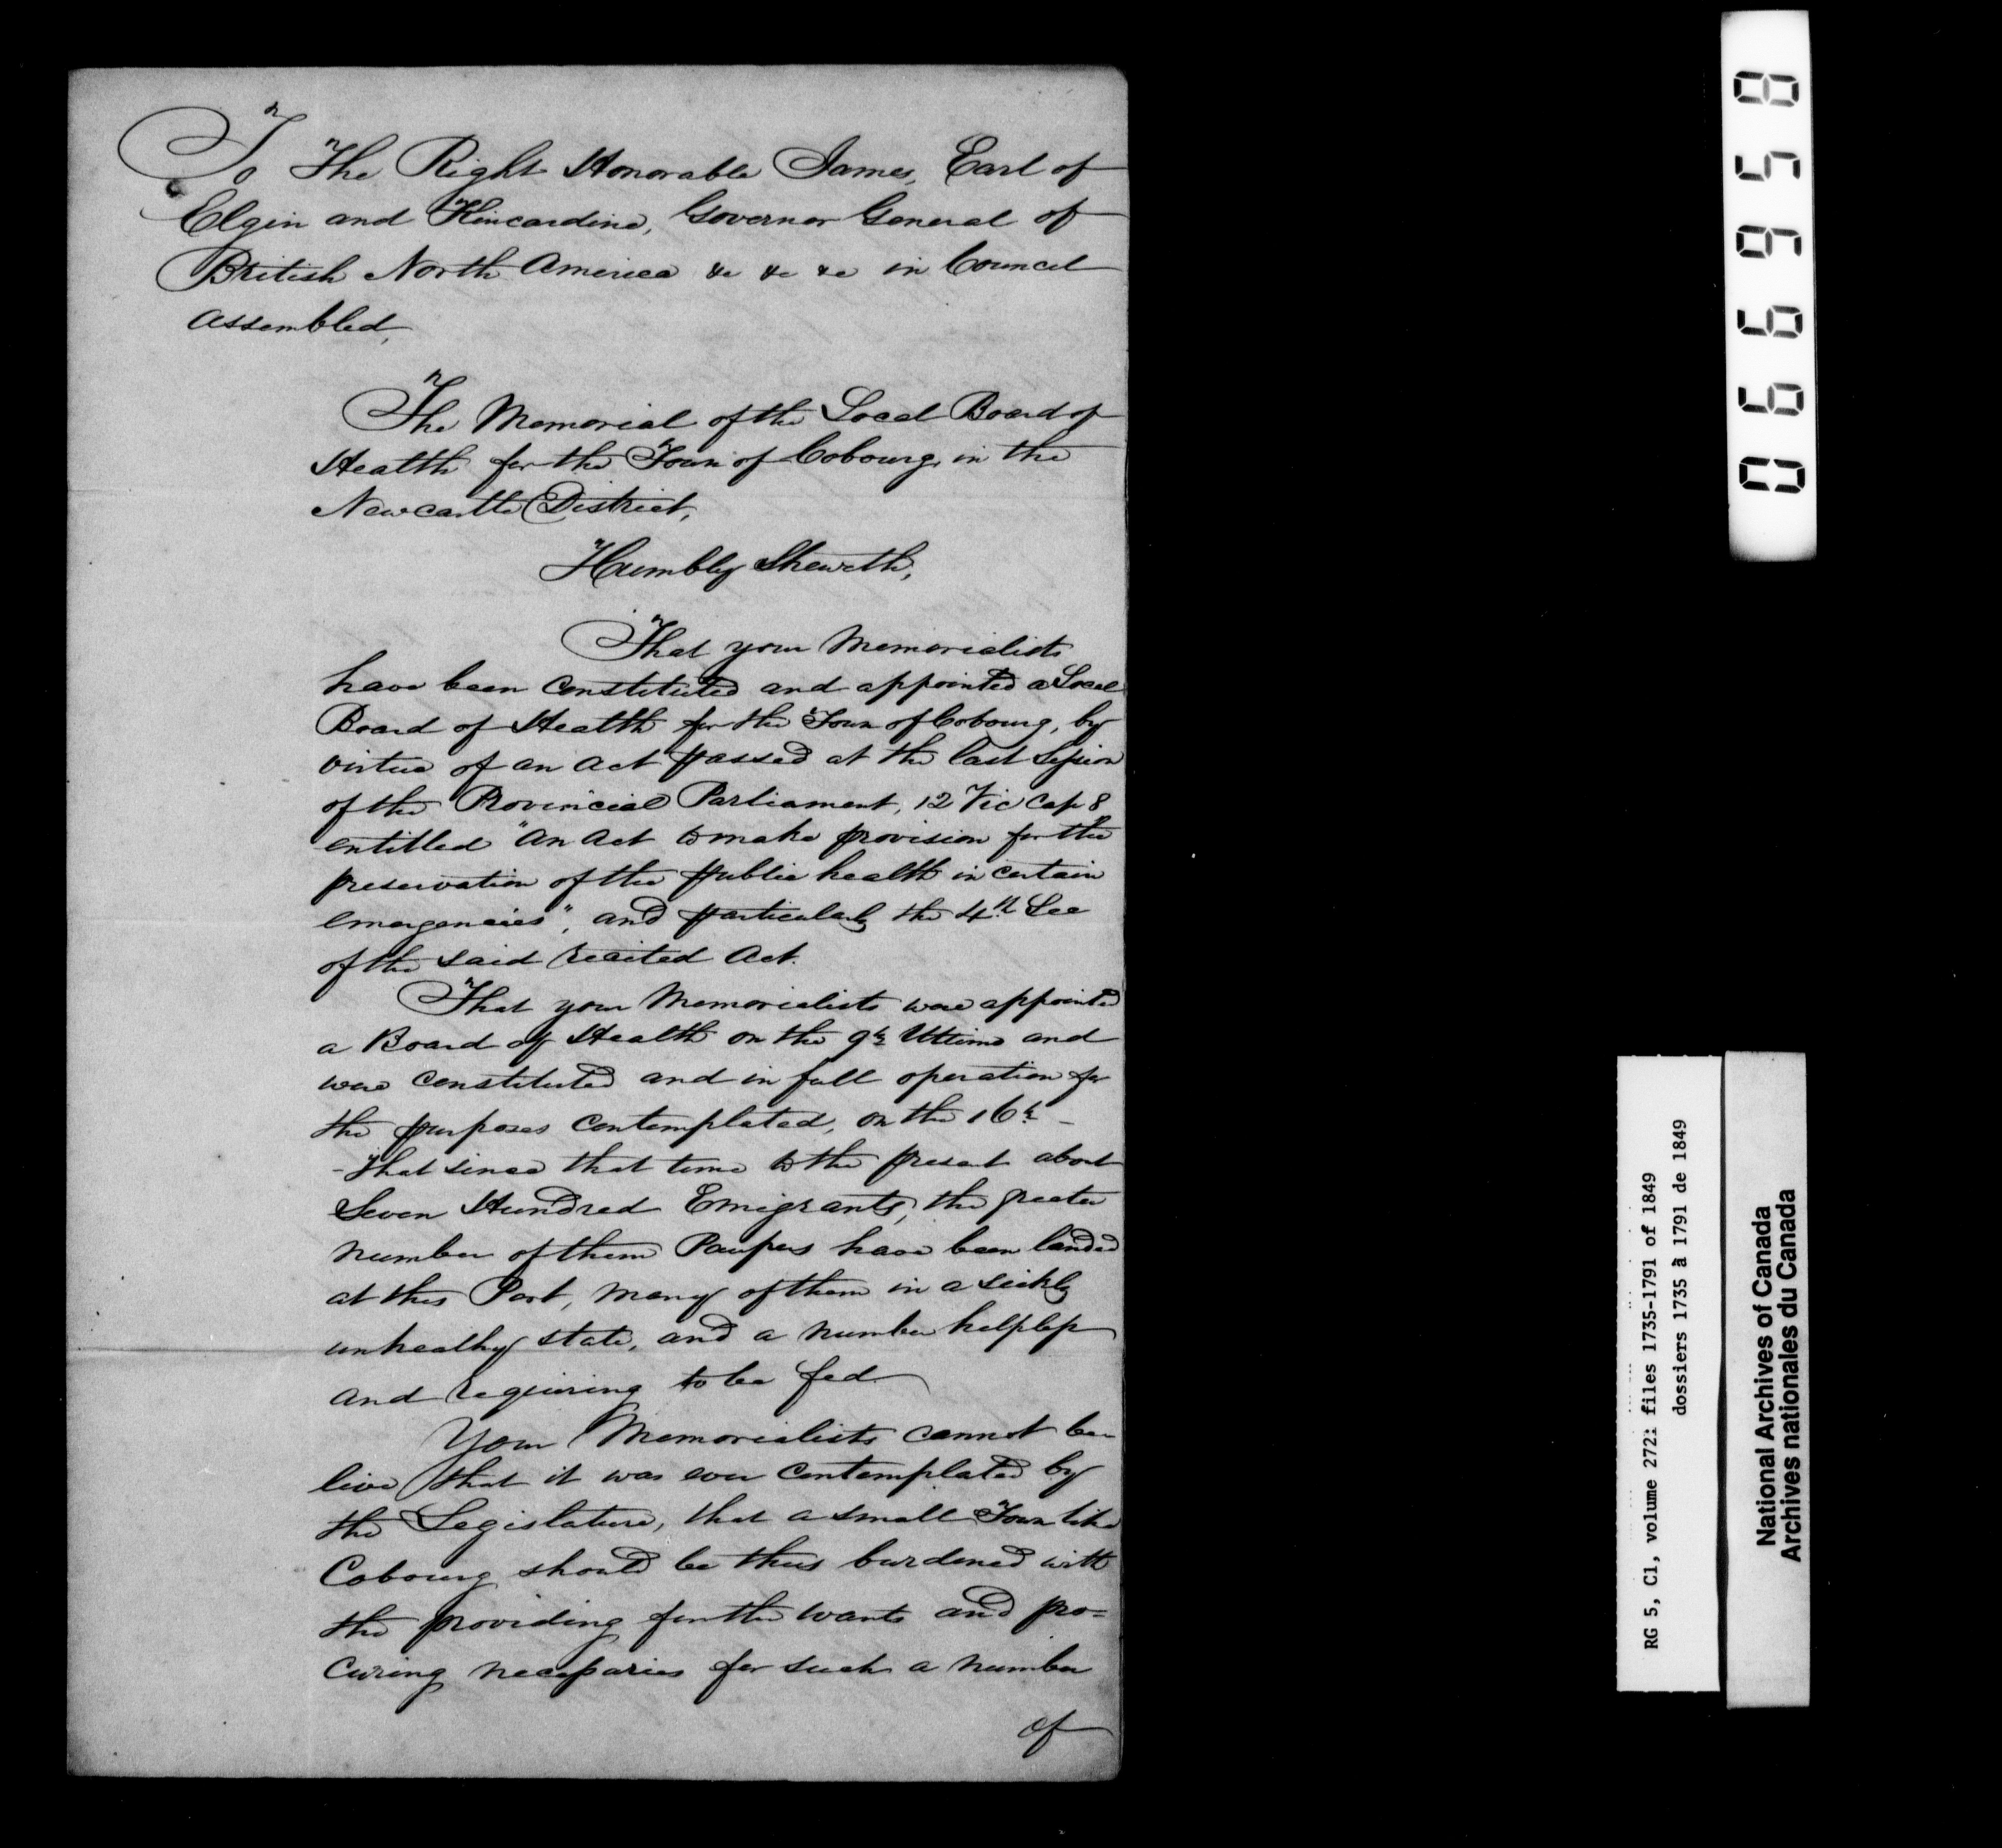 To The Right Honorable James, Earl of
Elgin and Kincardine, Governor General of
British North America &c &c &c in Council
Assembled,
The Memorial of the Local Board of
Health for the Town of Cobourg, in the
Newcastle District,
Humbly Sheweth,
That your Memorialists
have been constituted and appointed a Local
Board of Health for the Town of Cobourg, by
virtue of an Act passed at the last Session
of the Provincial Parliament, 12 Vic Cap 8
entitled "An Act to make provision for the
preservation of the public health in certain
emergencies", and particularly the 4th Sec
of the said recited Act.
That your Memorialists were appointed
a Board of Health on the 9th Ultimo and
were constituted and in full operation for
the purposes contemplated, on the 16th -
- That since that time to the present about
Seven Hundred Emigrants, the greater
number of them Paupers have been landed
at this Port, many of them in a sickly
unhealthy state, and a number helpless
and requiring to be fed
Your Memorialists cannot be-
lieve that it was ever contemplated by
the Legislature, that a small Town like
Cobourg should be thus burdened with
the providing for the wants and pro=
curing necessaries for such a number
of
066958
RG 5, C1, volume 272: files 1735-1791 of 1849
dossiers 1735 à 1791 de 1849
National Archives of Canada
Archives nationales du Canada